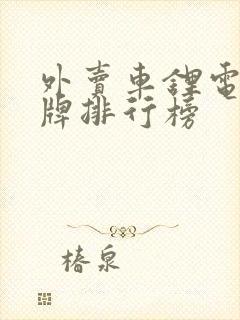 外賣車鋰電
牌排行榜
椿泉